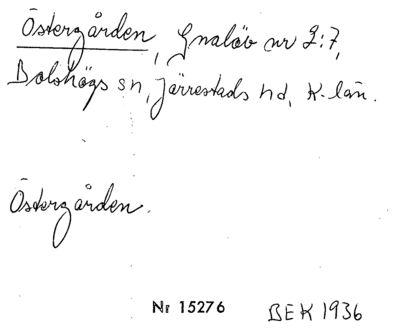 Östergården, Gnalöv nr 2:7,
Bolshögs sn, Järrestads hd, K-län.
Östergården.
Nr 15276 BEK 1936